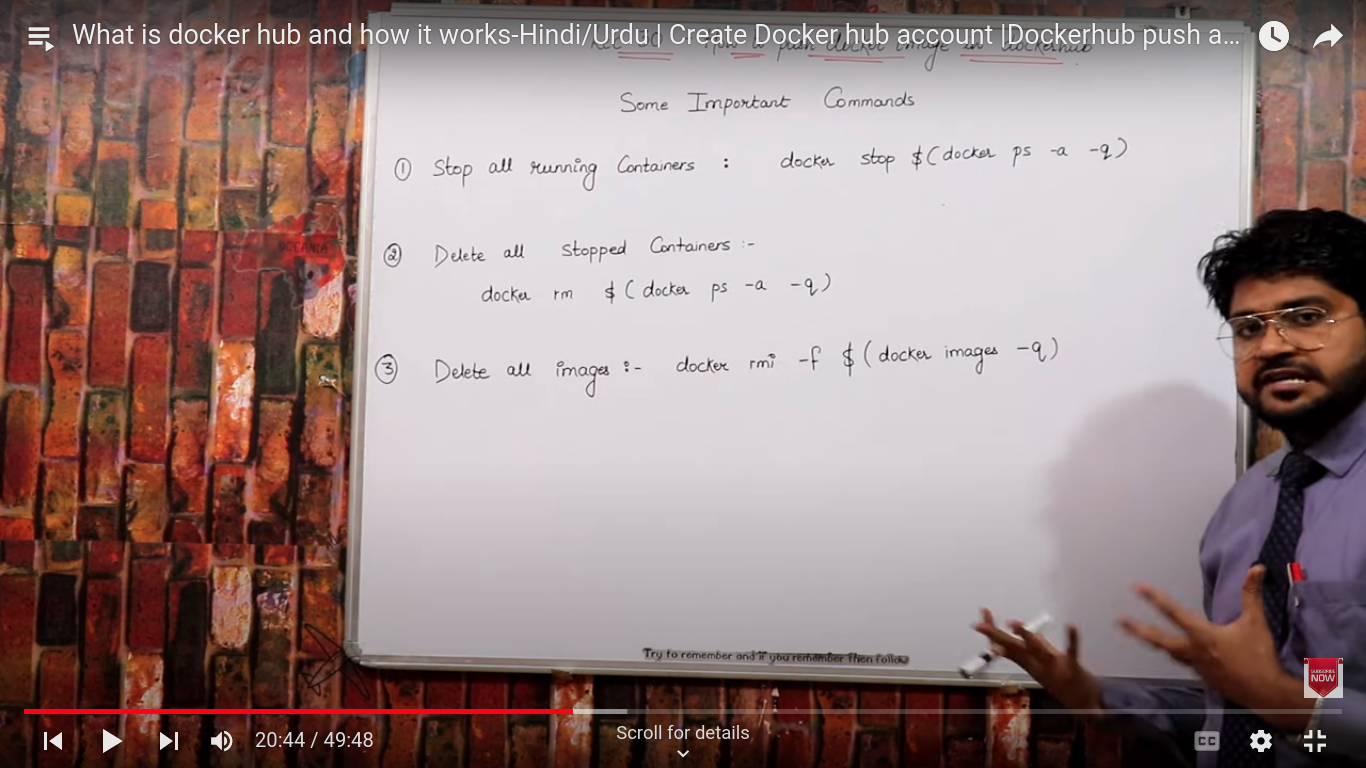 What is docker hub and how it works-Hindi/Urdu | Create Docker hub account |Dockerhub push a...
How to push docker image in dockerhub
Some Important Commands
① Stop all running Containers : docker stop $(docker ps -a -q)
OCEANIA
② Delete all Stopped Containers :-
docker rm $(docker ps -a -q)
③ Delete all images :- docker rmi -f $(docker images -q)
Try to remember and if you remember then follow
SUBSCRIBE
NOW
20:44 / 49:48
Scroll for details
CC